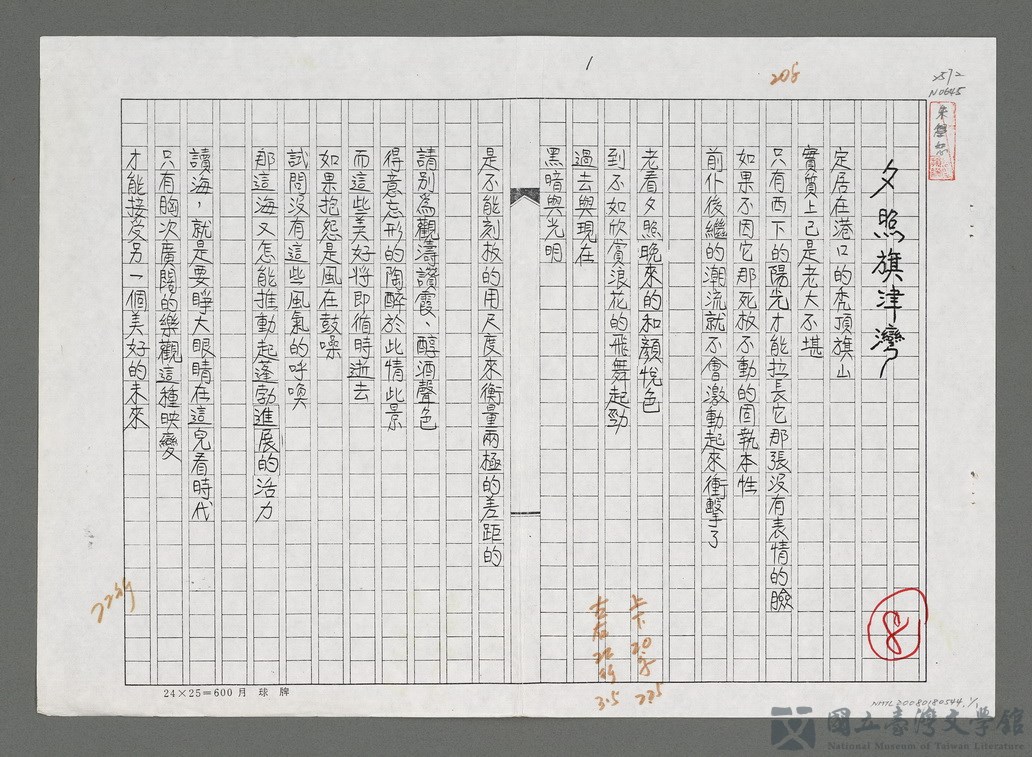 1
208
2572
N0645
夕照旗津灣
定居在港口的禿頂旗山
實質上已是老大不堪
只有西下的陽光才能拉長它那張沒有表情的臉
如果不因它那死板不動的固執本性
前仆後繼的潮流就不會激動起來衝擊了
老看夕照晚來的和顏悅色
到不如欣賞浪花的飛舞起勁
過去與現在
黑暗與光明
是不能刻板的用尺度來衡量兩極的差距的
請別為觀濤讚霞、醇酒聲色
得意忘形的陶醉於此情此景
而這些美好將即循時逝去
如果抱怨是風在鼓噪
試問沒有這些風氣的呼喚
那這海又怎能推動起蓬勃進展的活力
讀海，就是要睜大眼睛在這兒看時代
只有胸次廣闊的樂觀這種映變
才能接受另一個美好的未來
8
上下20字
左右22行
3.5
24×25=600月球牌
NMTL20080180544, 1/1
國立臺灣文學館
National Museum of Taiwan Literature